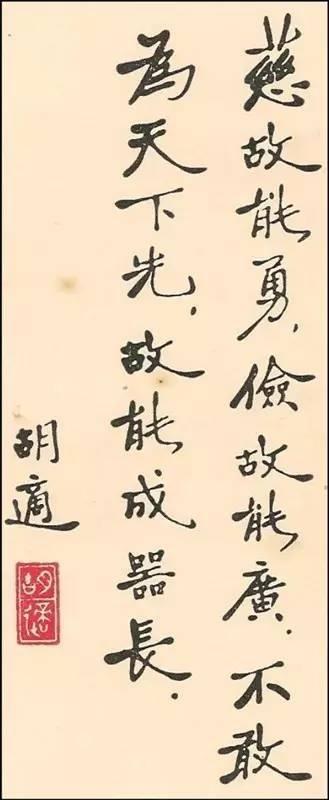 慈故能勇，儉故能廣，不敢
為天下先，故能成器長．
胡適
胡適